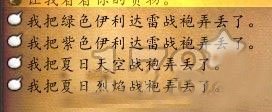 让我看看你的货物。
我把绿色伊利达雷战袍弄丢了。
我把紫色伊利达雷战袍弄丢了。
我把夏日天空战袍弄丢了。
我把夏日烈焰战袍弄丢了。